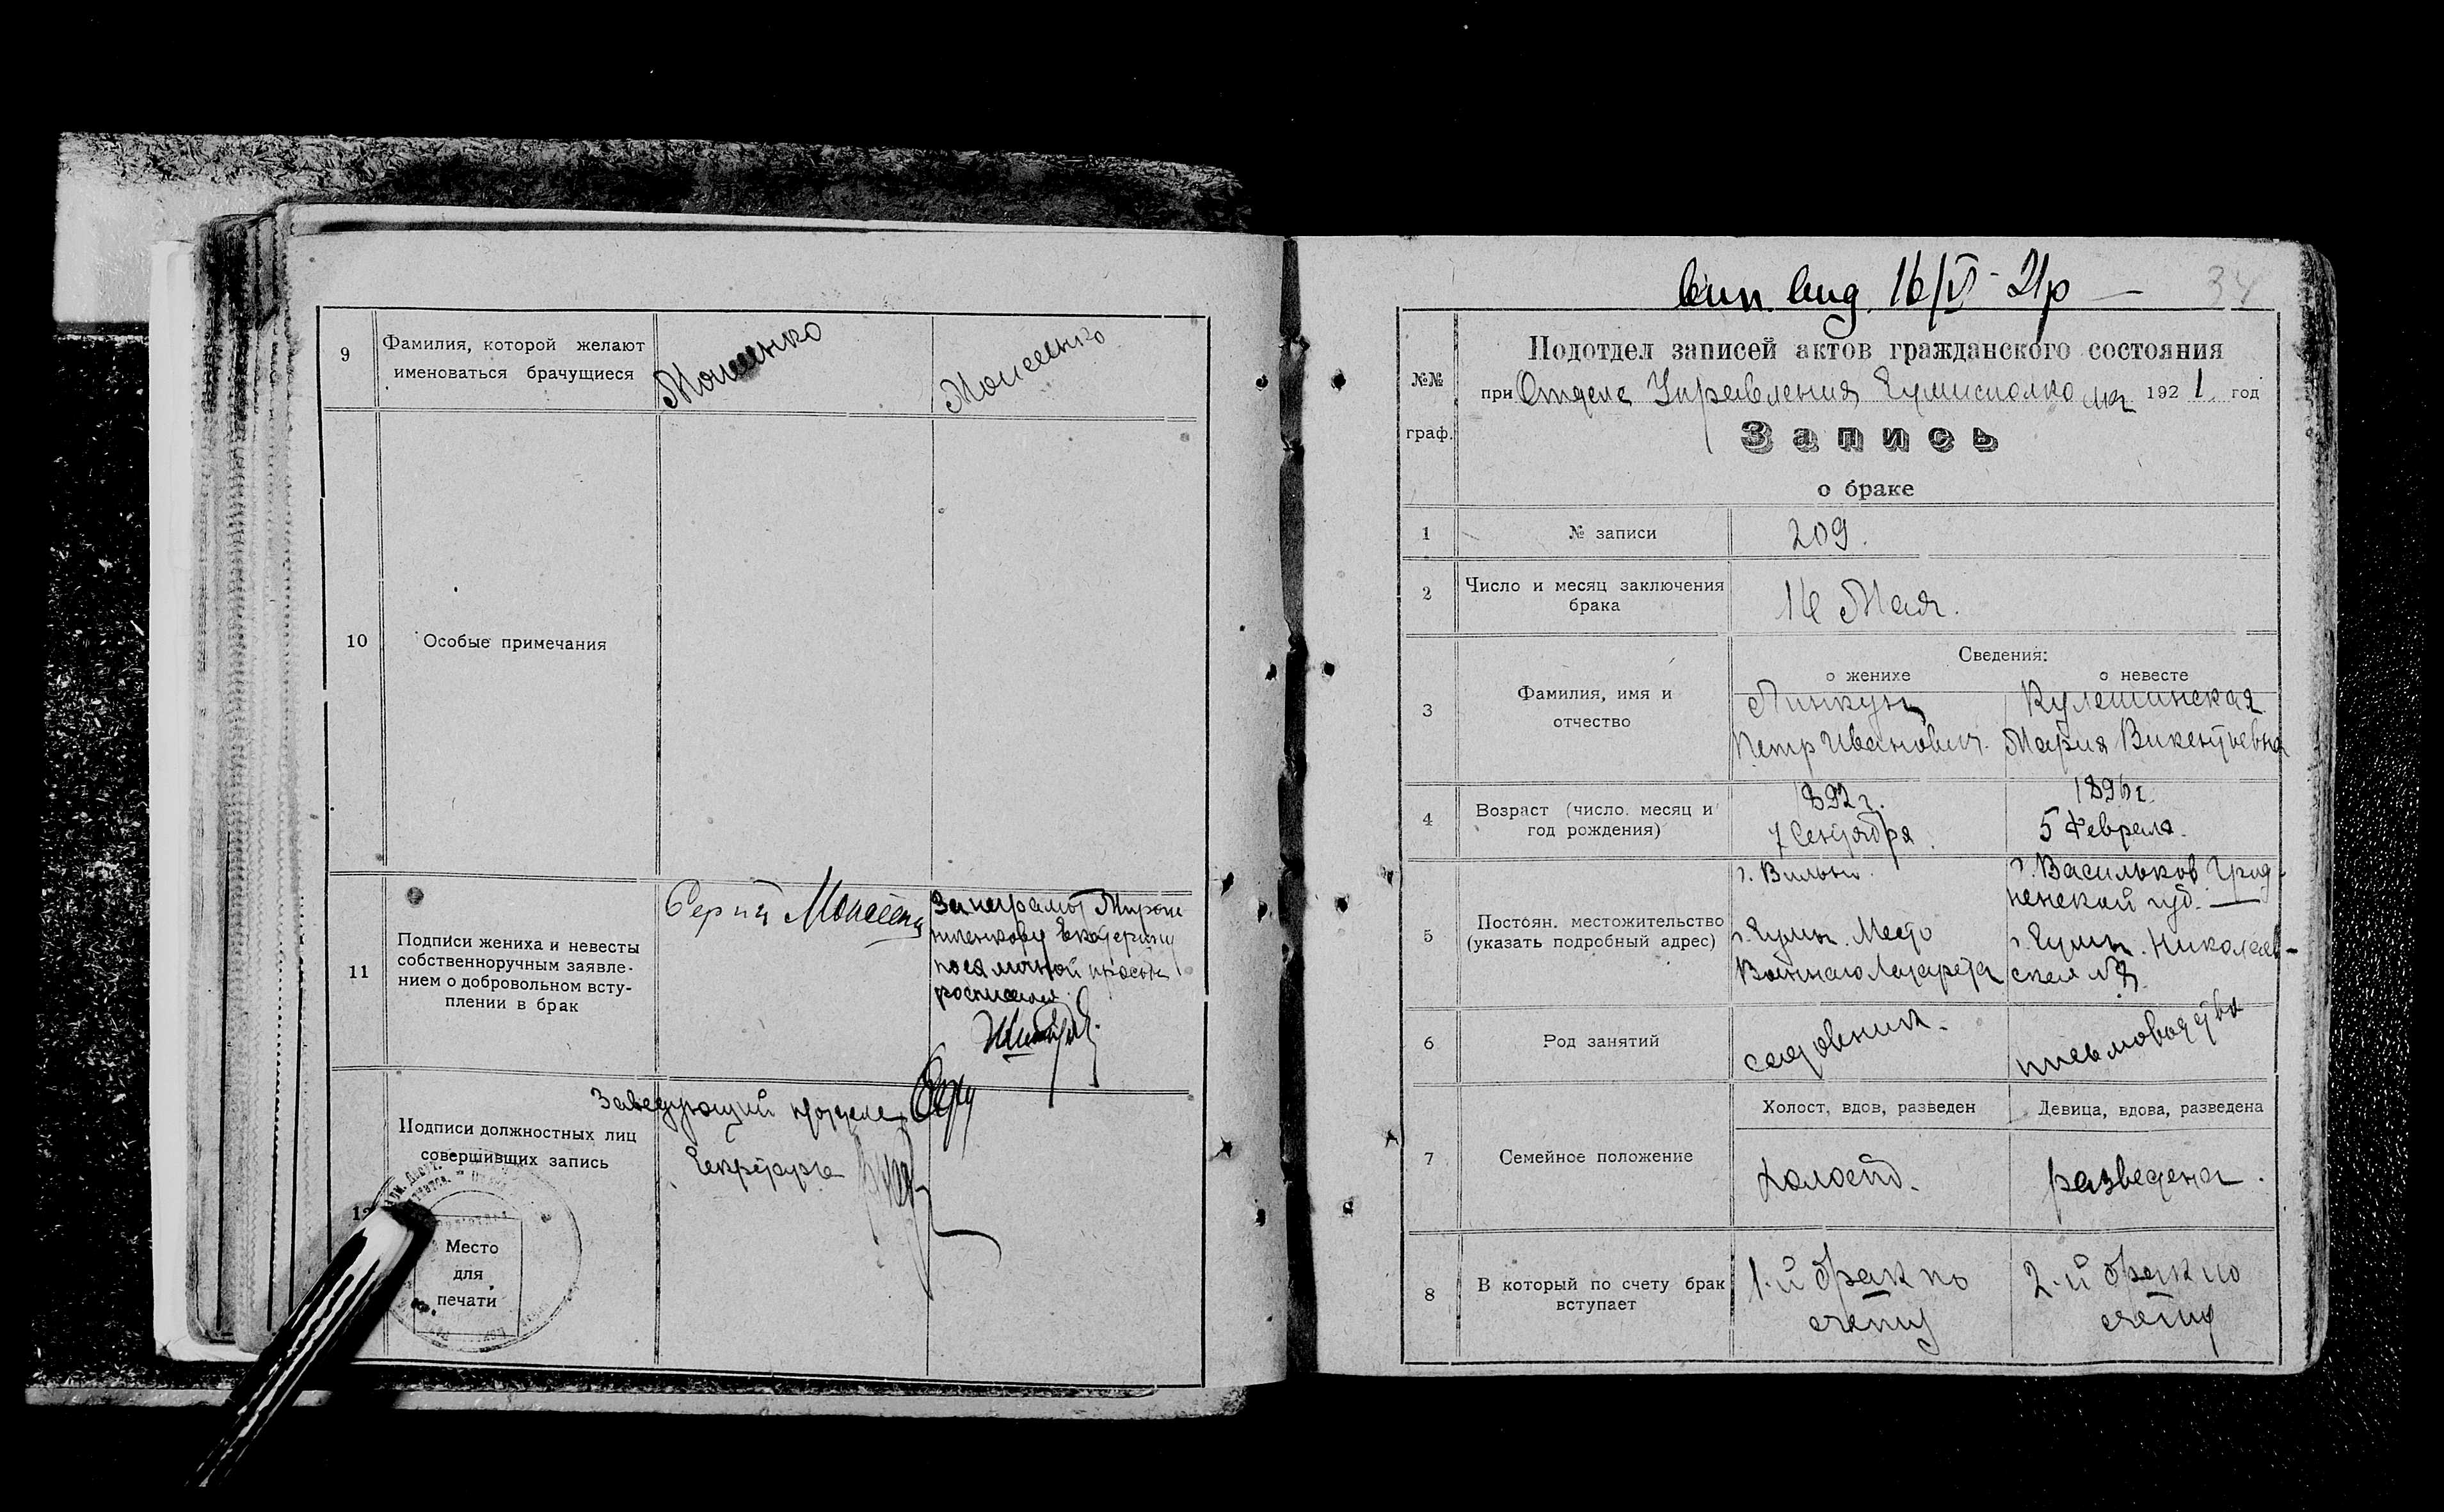 9
Фамилия, которой желают
именоваться брачущиеся
Моисенко
Моисеенко
10
Особые примечания
11
Подписи жениха и невесты
собственноручным заявле-
нием о добровольном всту-
плении в брак
Сергей Моисеенко
За неграмот. Мирош
ниченкову Екатерину
по ея личной просьбе
росписался
12
Подписи должностных лиц
совершивших запись
Заведующий
Секретарь
Место
для
печати
вид. 16/V 21р
34
№№
граф.
Подотдел записей актов гражданского состояния
при Отделе Управления Сумисполкома 1921 год
Запись
о браке
1
№ записи
209.
2
Число и месяц заключения
брака
16 Мая.
3
Фамилия, имя и
отчество
Сведения:
о женихе
о невесте
Линкун
Петр Иванович
Кулешинская
Мария Викентьевна
4
Возраст (число, месяц и
год рождения)
1892 г.
7 Сентября
1896 г.
5 Февраля.
5
Постоян. местожительство
(указать подробный адрес)
г. Вильно.
г. Сумы. Место
Военнаго Лазарета
г. Васильков Грод-
ненской губ.
г. Сумы. Николаев-
ская №
6
Род занятий
садовник.
письмоводство
7
Семейное положение
Холост, вдов, разведен
Девица, вдова, разведена
холост.
разведена.
8
В который по счету брак
вступает
1-й брак по
счету
2-й брак по
счету